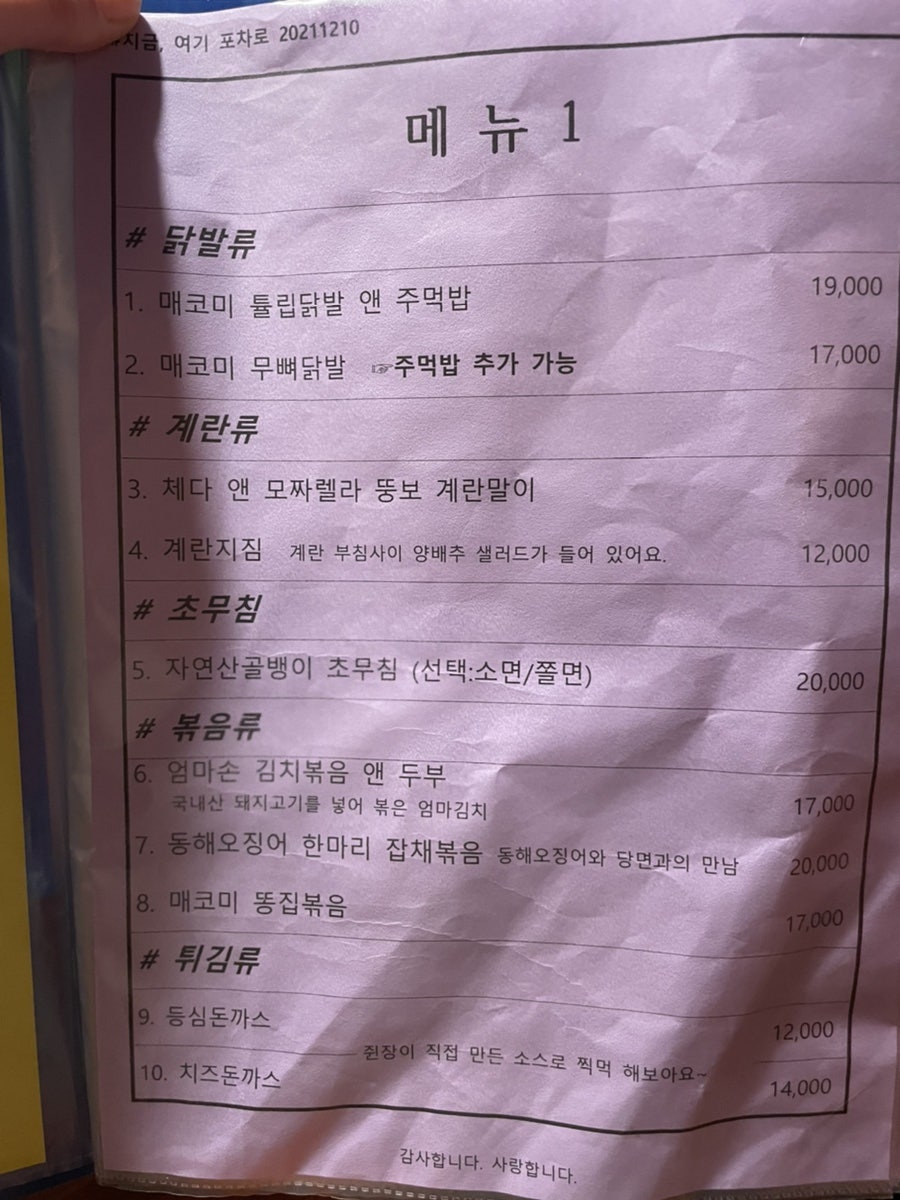 지금, 여기 포차로 20211210
메 뉴 1
# 닭발류
1. 매코미 튤립닭발 앤 주먹밥 19,000
2. 매코미 무뼈닭발 ☞주먹밥 추가 가능 17,000
# 계란류
3. 체다 앤 모짜렐라 뚱보 계란말이 15,000
4. 계란지짐 계란 부침사이 양배추 샐러드가 들어 있어요. 12,000
# 초무침
5. 자연산골뱅이 초무침 (선택:소면/쫄면) 20,000
# 볶음류
6. 엄마손 김치볶음 앤 두부
국내산 돼지고기를 넣어 볶은 엄마김치 17,000
7. 동해오징어 한마리 잡채볶음 동해오징어와 당면과의 만남 20,000
8. 매코미 똥집볶음 17,000
# 튀김류
9. 등심돈까스 12,000
쥔장이 직접 만든 소스로 찍먹 해보아요~
10. 치즈돈까스 14,000
감사합니다. 사랑합니다.